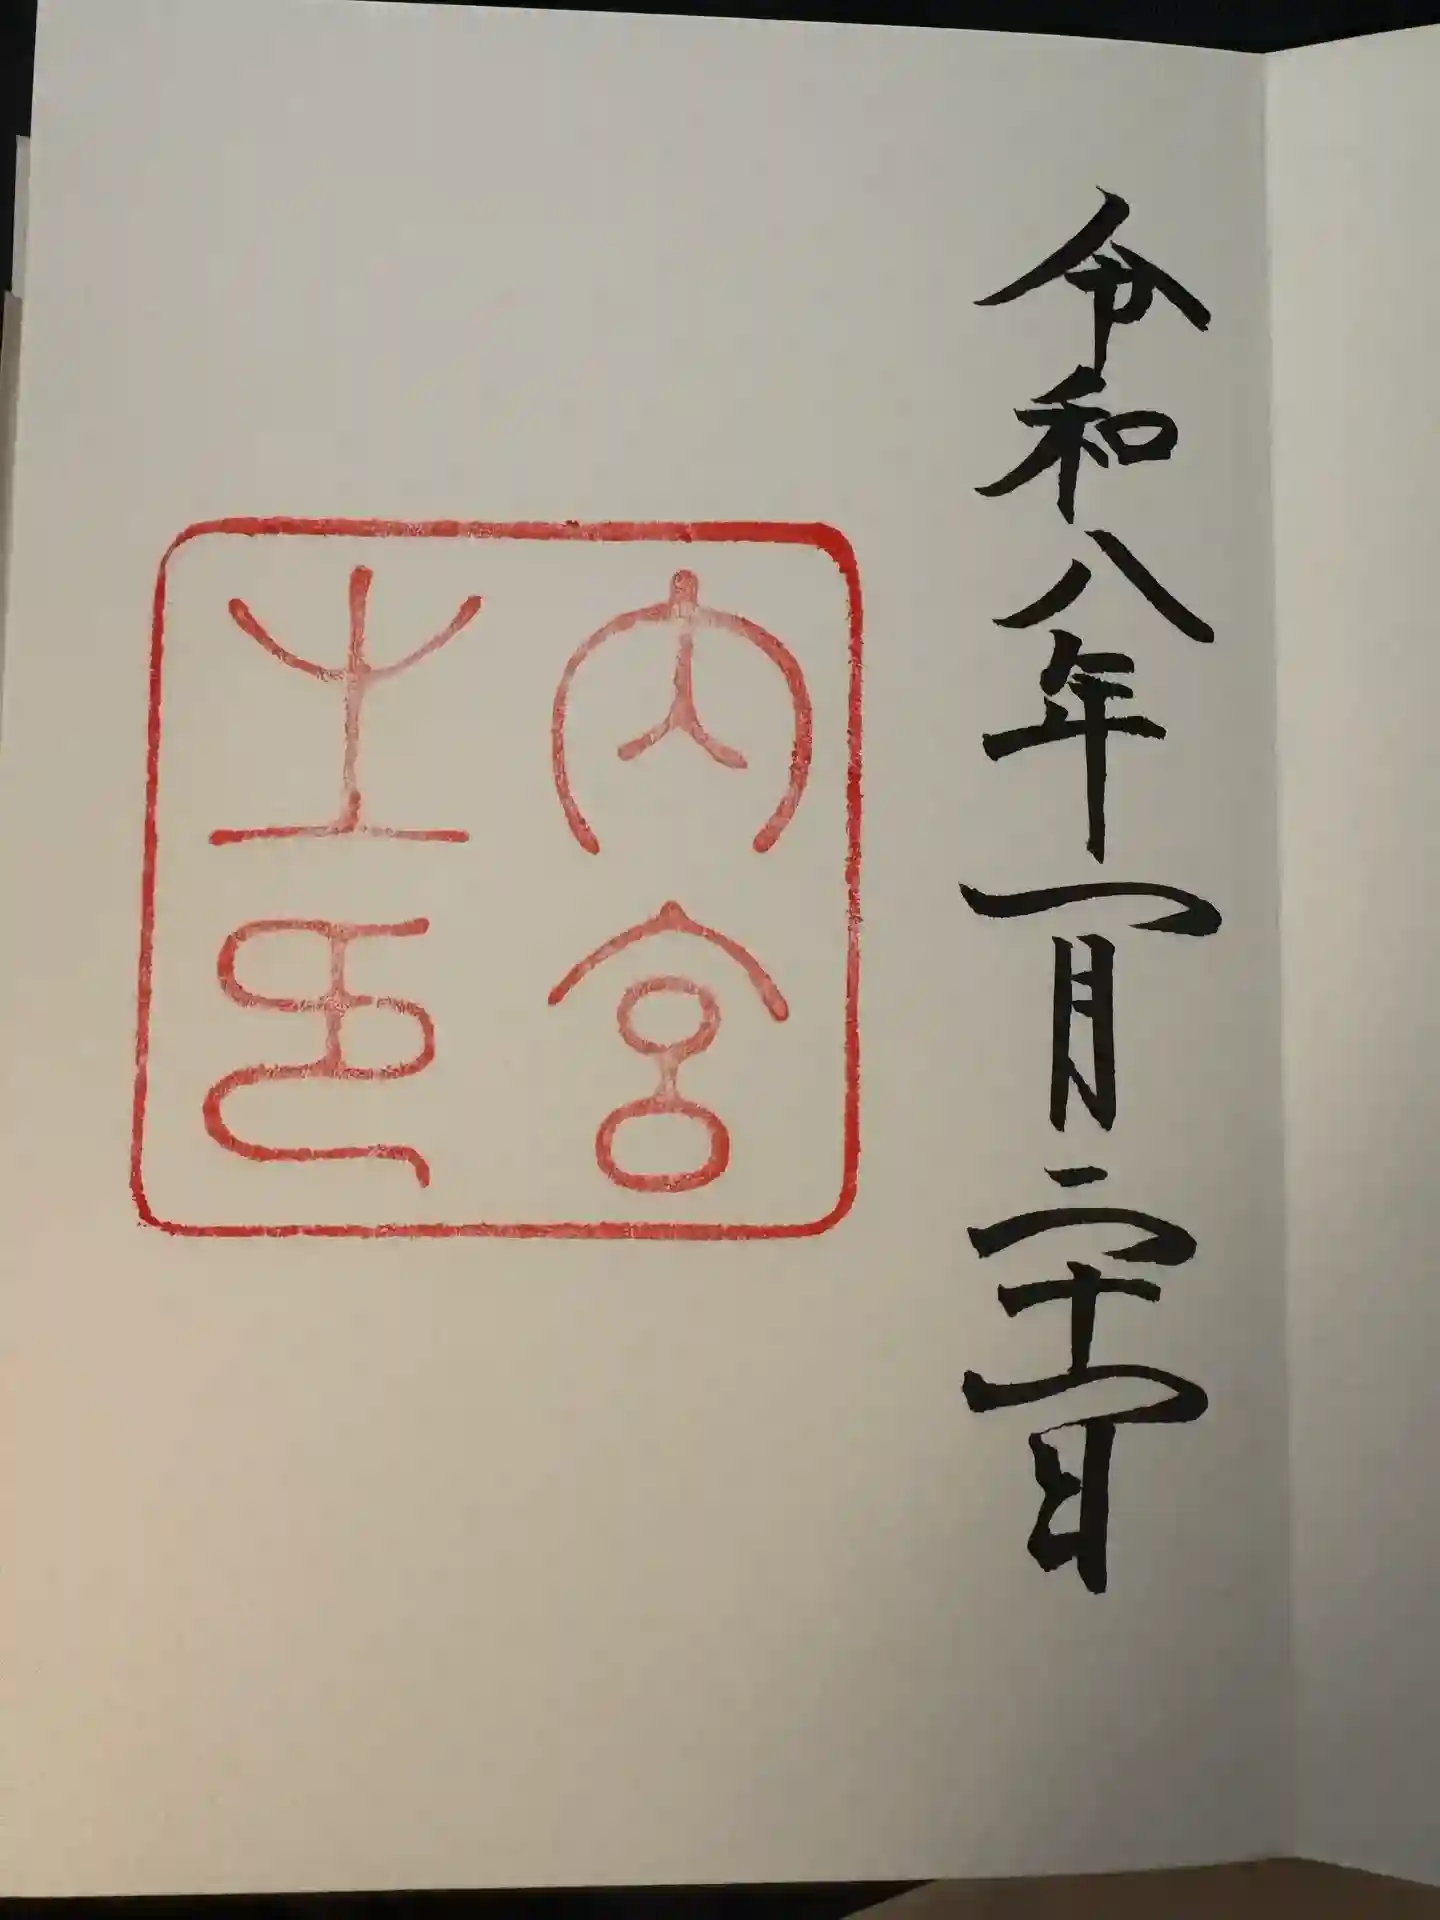 令和八年一月二十一日
内宮
之印